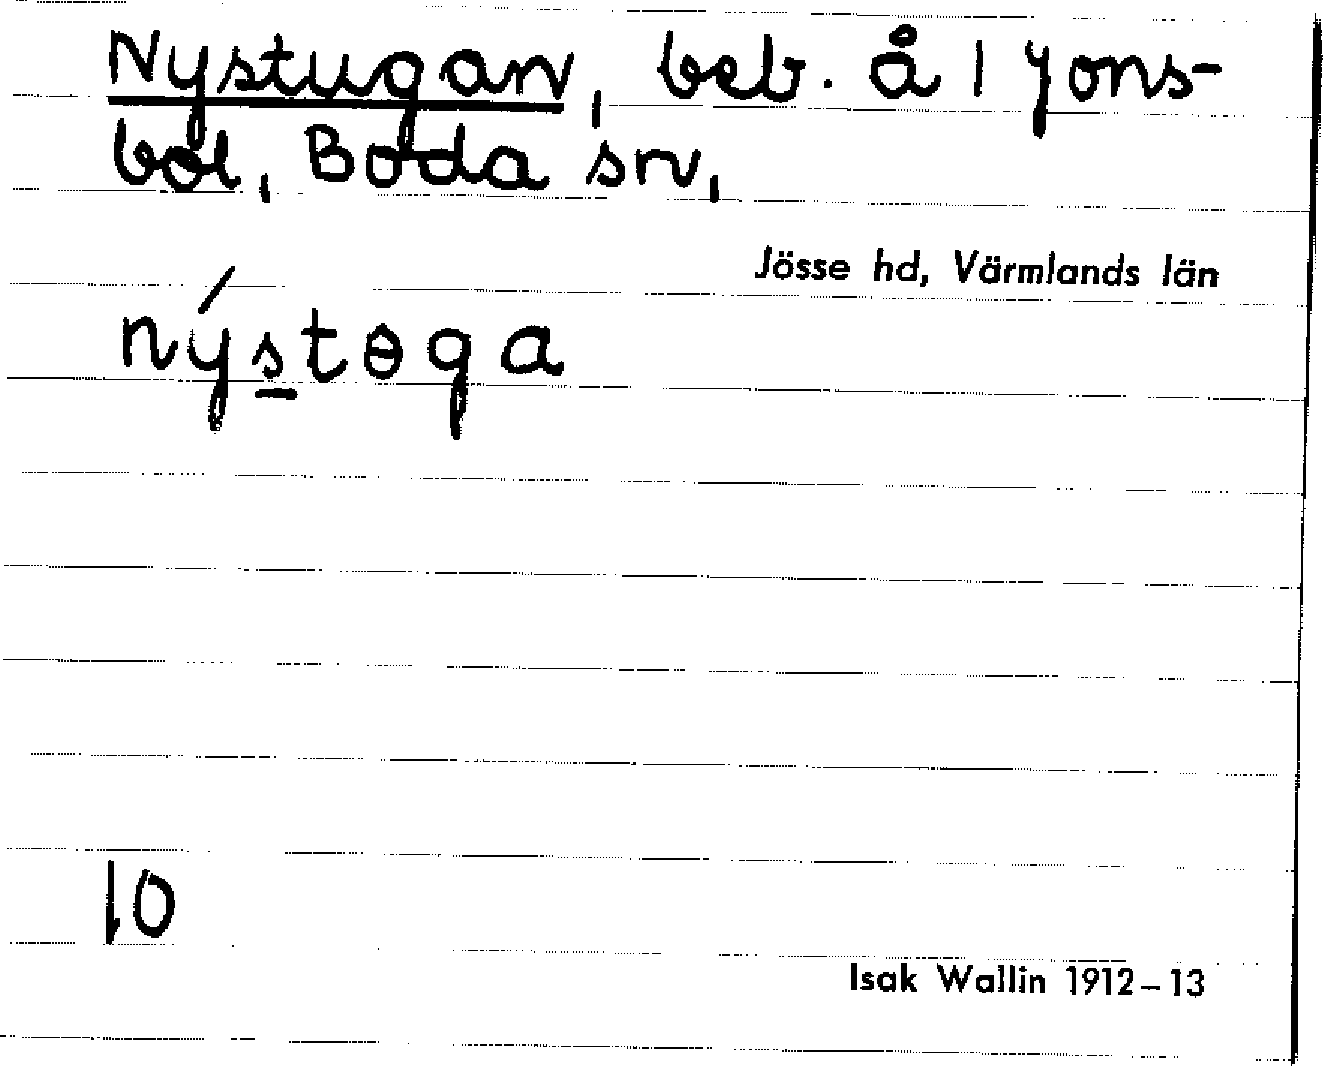 Nystugan, beb. å 1 Jons-
bol, Boda sn,
Jösse hd, Värmlands län
nýstɵga
10
Isak Wallin 1912–13